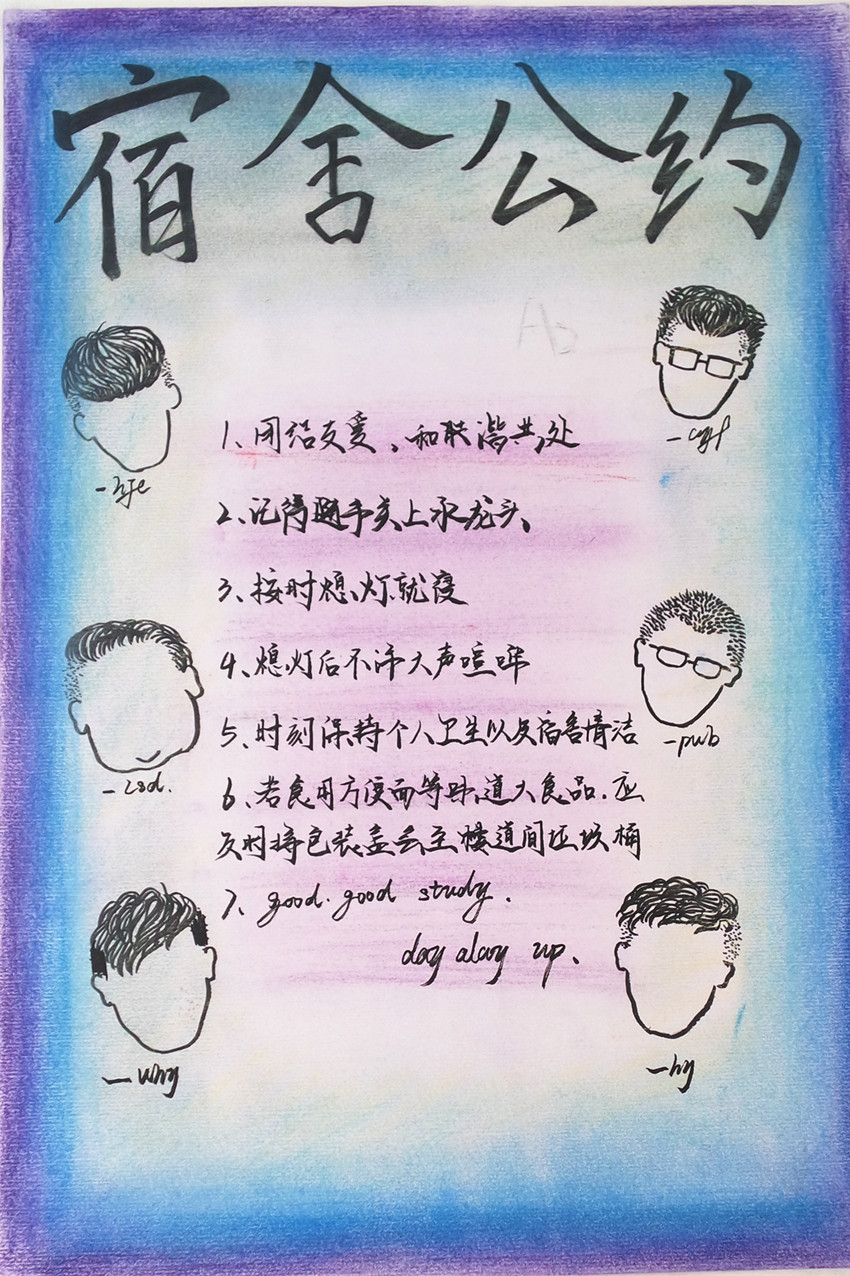 宿舍公约
Ab
1、团结友爱、和睦谐共处
2、记得随手关上水龙头、
3、按时熄灯就寝
4、熄灯后不许大声喧哗
5、时刻保持个人卫生以及宿舍清洁
6、若食用方便面等味道大食品.应
及时将包装盖丢至楼道间垃圾桶
7、good.good study.
day alay up、
-hje
-lsd.
-why
-pwb
-hy